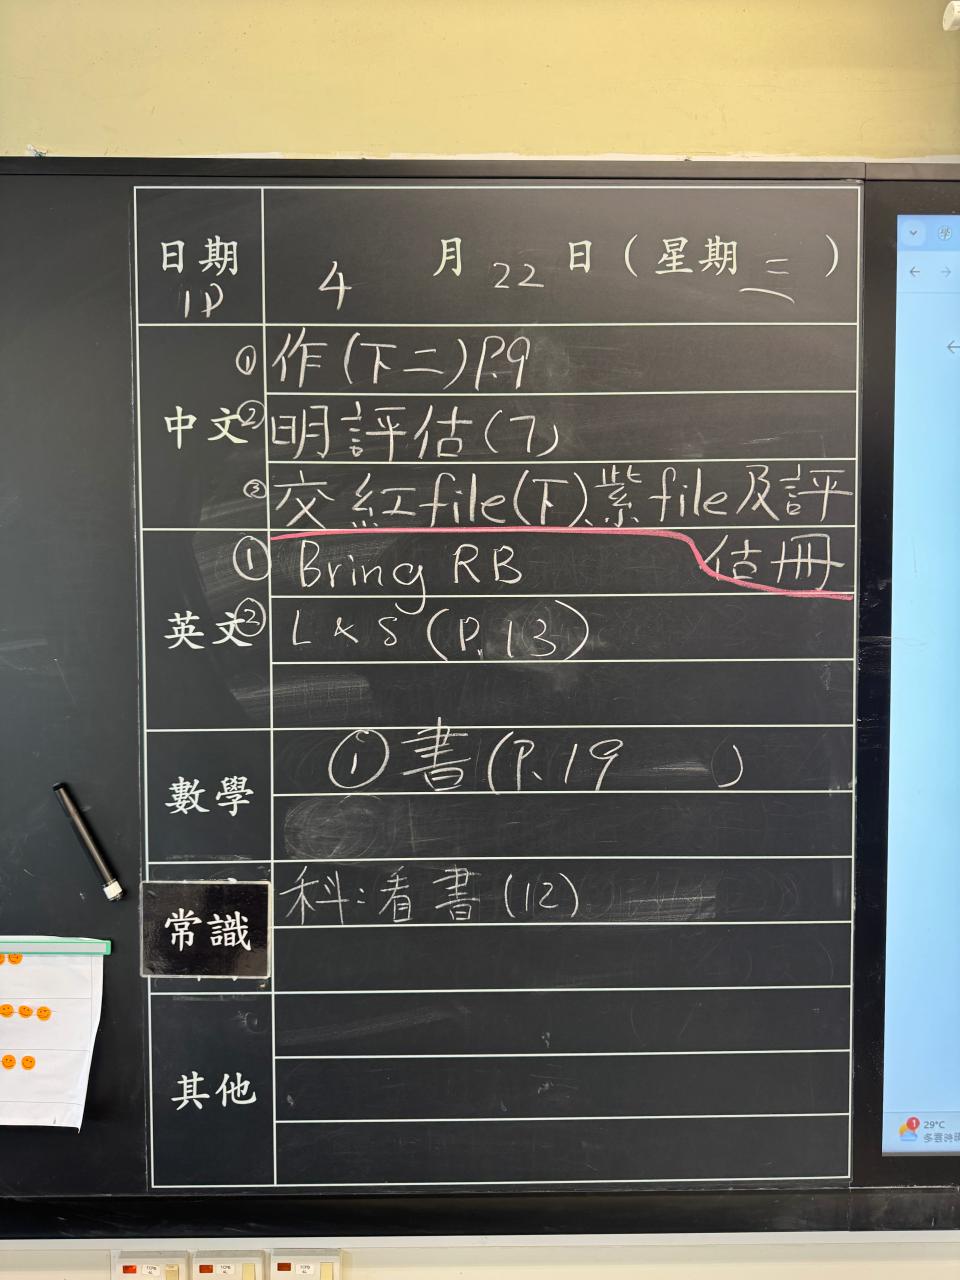 日期 4 月 22 日（星期 三 ）
1P
中文
① 作(下二)P.9
② 明評估(7)
③ 交紅file(下)、紫file及評
估冊
英文
① Bring RB
② L & S (P.13)
數學
① 書(P.19 )
常識
科:看書(12)
其他
學
1
29°C